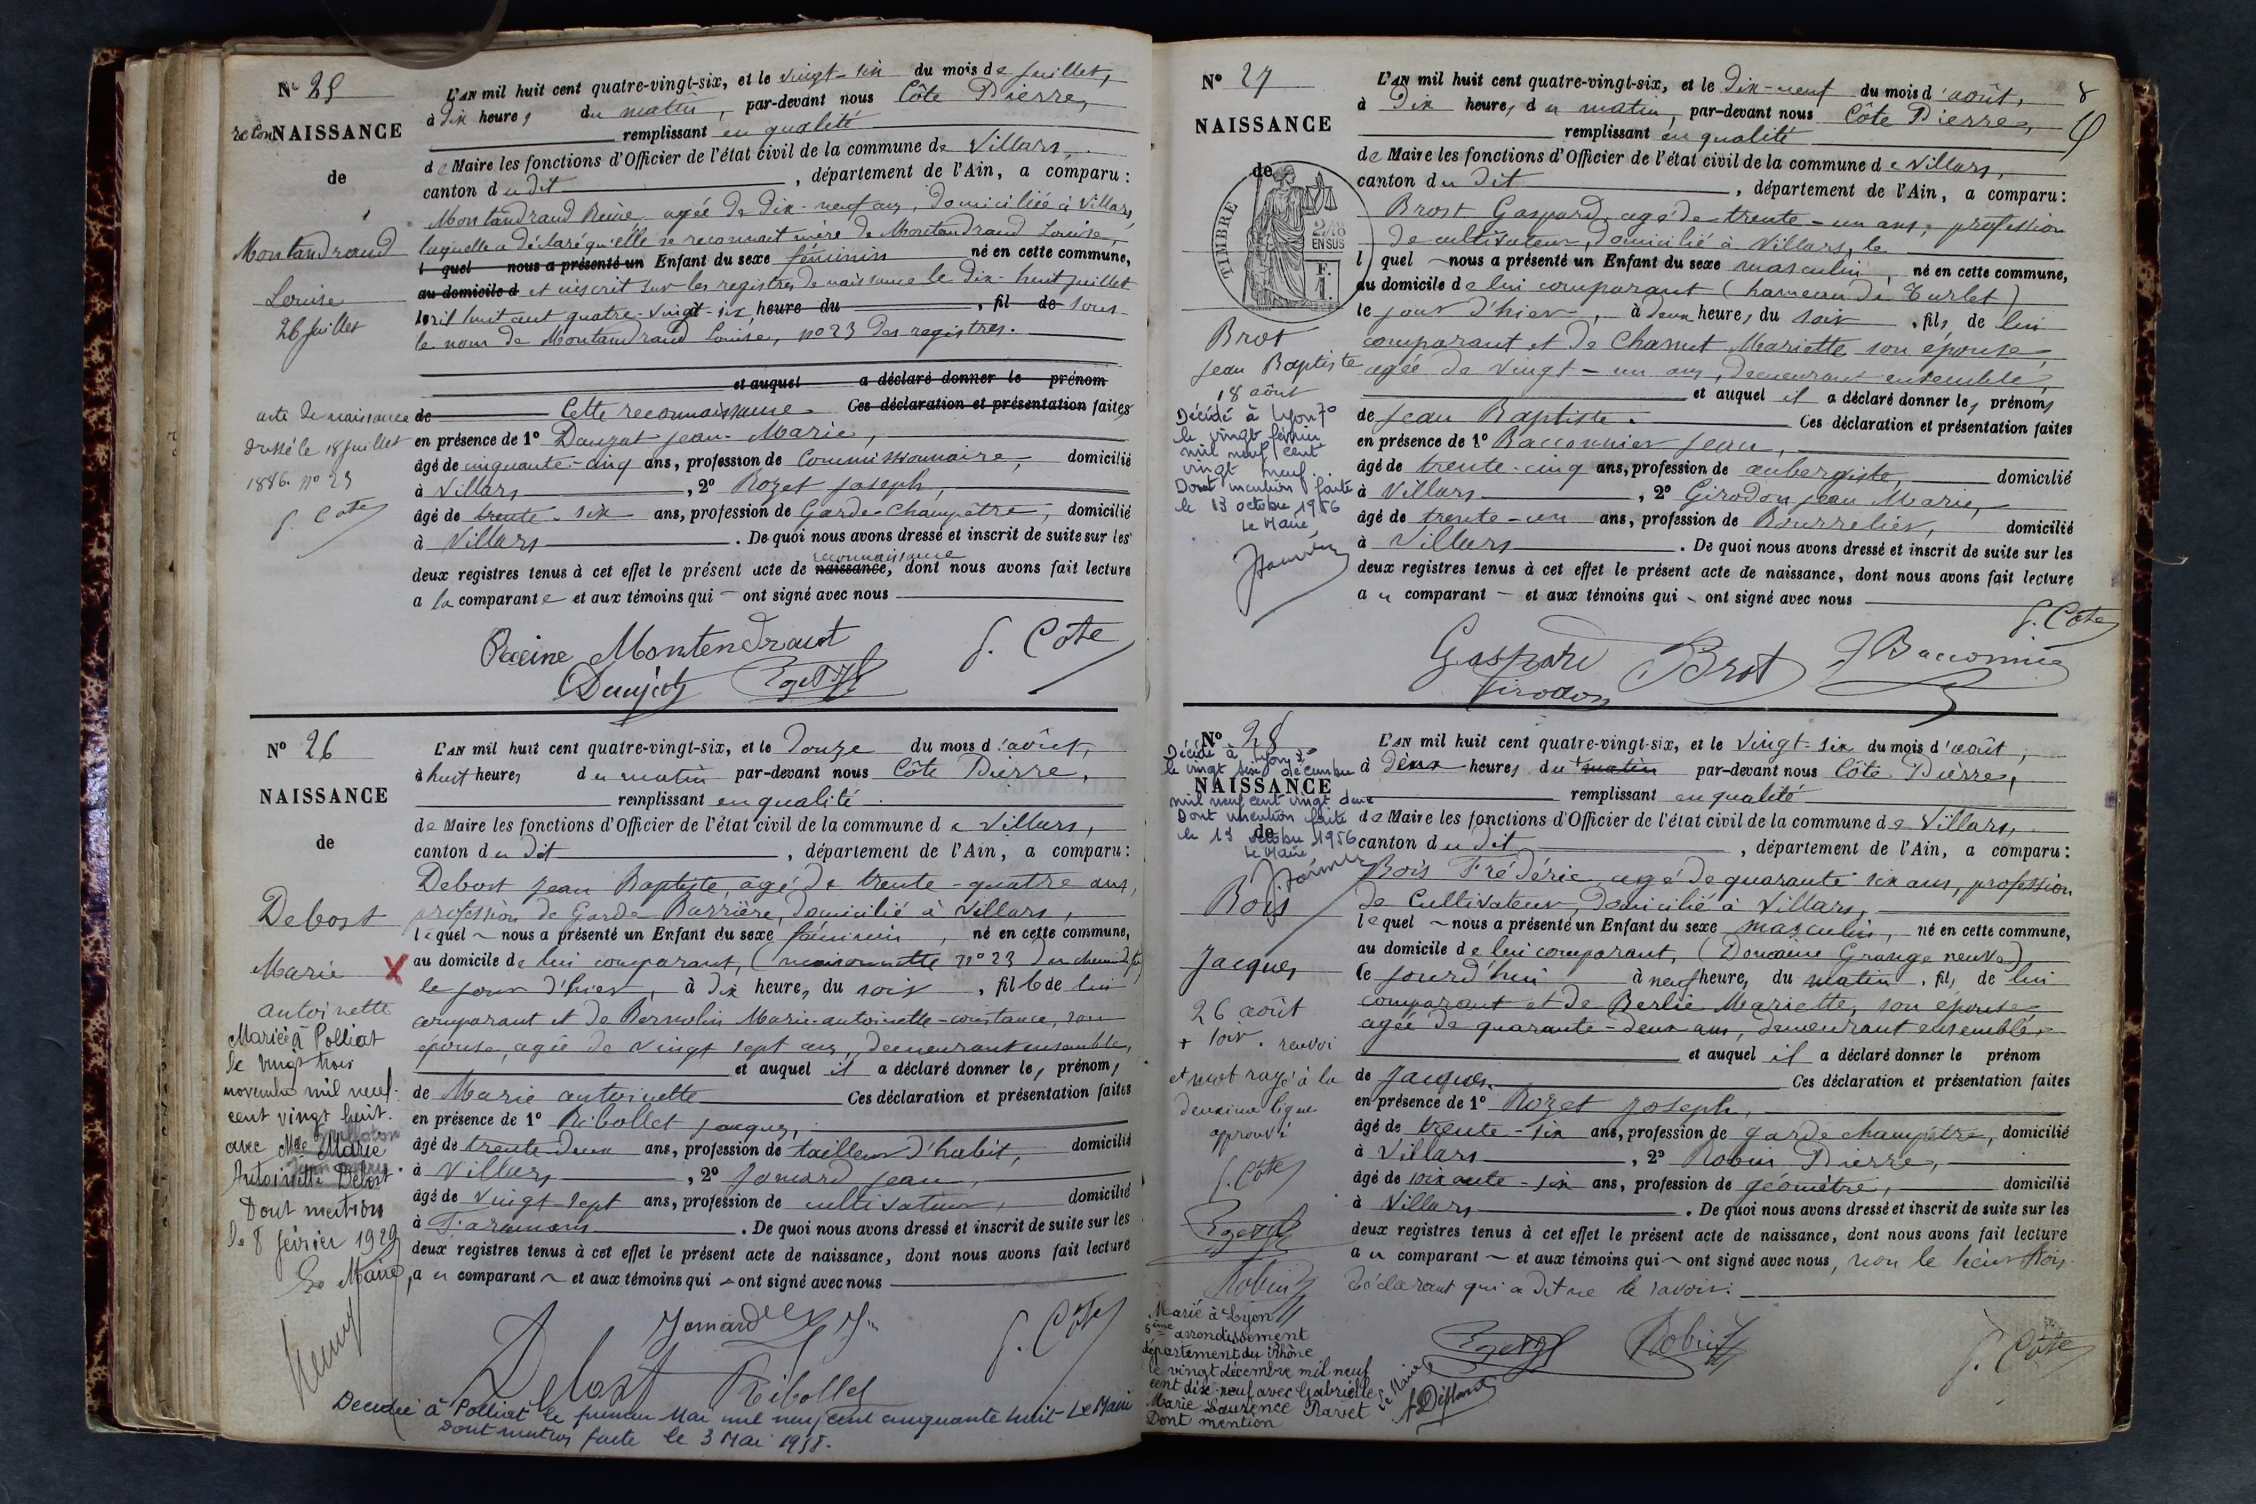 N° 25
reconNAISSANCE
de
Montandraud
Louise
26 Juillet
acte de naissance
dressé le 18 Juillet
1886. n° 23
P. Côte
L'AN mil huit cent quatre-vingt-six, et le vingt-six du mois de Juillet,
à dix heures du matin, par-devant nous Côte Pierre,
remplissant en qualité
de Maire les fonctions d'Officier de l'état civil de la commune de Villars,
canton du dit, département de l'Ain, a comparu :
Montandraud Reine agée de dix-neuf ans, domiciliée à Villars,
laquelle a déclaré qu'elle se reconnait mère de Montandraud Louise,
l quel nous a présenté un Enfant du sexe féminin né en cette commune,
au domicile d et inscrit sur les registres de naissance le dix-huit juillet
mil huit cent quatre-vingt-six, heure du , fil de sous
le nom de Montandraud Louise, n° 23 des registres.
et auquel a déclaré donner le prénom
de Cette reconnaissance Ces déclaration et présentation faites
en présence de 1° Dauzat Jean-Marie,
âgé de cinquante-cinq ans, profession de Commissionnaire, domicilié
à Villars, 2° Rozet Joseph,
âgé de trente-six ans, profession de Garde-Champêtre, domicilié
à Villars. De quoi nous avons dressé et inscrit de suite sur les
reconnaissance
deux registres tenus à cet effet le présent acte de naissance, dont nous avons fait lecture
a la comparante et aux témoins qui ont signé avec nous
Reine Montendraut P. Côte
N° 26
NAISSANCE
de
Debost
Marie X
antoinette
Mariée à Polliat
le vingt trois
novembre mil neuf
cent vingt huit
avec
Marie
Antoinette Debost
Dont mention
le 8 février 1929
Le Maire,
L'AN mil huit cent quatre-vingt-six, et le douze du mois d'août,
à huit heures du matin par-devant nous Côte Pierre,
remplissant en qualité
de Maire les fonctions d'Officier de l'état civil de la commune de Villars,
canton du dit, département de l'Ain, a comparu :
Debost Jean Baptiste, agé de trente-quatre ans,
profession de Garde Barrière, domicilié à Villars,
lequel nous a présenté un Enfant du sexe féminin, né en cette commune,
au domicile de lui comparant, (maisonnette n° 23 du chemin de fer)
le jour d'hier, à dix heures du soir, fille de lui
comparant et de Bernolin Marie-antoinette-constance, son
épouse, agée de vingt sept ans, demeurant ensemble,
et auquel il a déclaré donner les prénoms
de Marie antoinette Ces déclaration et présentation faites
en présence de 1° Ribollet Jacques,
âgé de trente deux ans, profession de tailleur d'habit, domicilié
à Villars, 2° Jomard Jean,
âgé de vingt sept ans, profession de cultivateur, domicilié
à. De quoi nous avons dressé et inscrit de suite sur les
deux registres tenus à cet effet le présent acte de naissance, dont nous avons fait lecture
a u comparant et aux témoins qui ont signé avec nous
Jomard P. Côte
Debost Ribollet
Décédée à Polliat le premier Mai mil neuf cent cinquante huit Le Maire
Dont mention faite le 3 Mai 1958.
N° 27
NAISSANCE
de
TIMBRE
2/10
EN SUS
F.
1.
Brot
Jean Baptiste
18 août
Décédé à Lyon 7°
le vingt février
mil neuf cent
vingt neuf.
Dont mention faite
le 13 octobre 1956
Le Maire
8
L'AN mil huit cent quatre-vingt-six, et le Dix-neuf du mois d'août,
à Dix heures du matin, par-devant nous Côte Pierre,
remplissant en qualité
de Maire les fonctions d'Officier de l'état civil de la commune de Villars,
canton du dit, département de l'Ain, a comparu :
Brost Gaspard, agé de trente-un ans, profession
de cultivateur, domicilié à Villars, le
l quel nous a présenté un Enfant du sexe masculin, né en cette commune,
au domicile de lui comparant (hameau de Turlet)
le jour d'hier, à deux heures du soir, fils de lui
comparant et de Charnet Mariette son épouse,
agée de vingt-un ans, demeurant ensemble,
et auquel il a déclaré donner les prénoms
de Jean Baptiste. Ces déclaration et présentation faites
en présence de 1° Bacconnier Jean,
âgé de trente-cinq ans, profession de aubergiste, domicilié
à Villars, 2° Girodon Jean Marie,
âgé de trente-un ans, profession de Bourrelier, domicilié
à Villars. De quoi nous avons dressé et inscrit de suite sur les
deux registres tenus à cet effet le présent acte de naissance, dont nous avons fait lecture
a u comparant et aux témoins qui ont signé avec nous
P. Côte
Gaspard Brot J Bacconnié
Girodon
N° 28
Décédé à Lyon 3°
le vingt six décembre
NAISSANCE
mil neuf cent vingt deux
Dont mention faite
de
le 13 octobre 1956
Le Maire
Bois
Jacques
26 août
+ soir. renvoi
et mot rayé à la
deuxième ligne
approuvé
P. Côte
Robin
Marié à Lyon
6ème arrondissement
département du Rhône
le vingt décembre mil neuf
cent dix-neuf avec Gabrielle
Marie Laurence Ravet
Dont mention
Le Maire
L'AN mil huit cent quatre-vingt-six, et le vingt-six du mois d'août,
à deux heures du + matin par-devant nous Côte Pierre,
remplissant en qualité
de Maire les fonctions d'Officier de l'état civil de la commune de Villars,
canton du dit, département de l'Ain, a comparu :
Bois Frédéric, agé de quarante six ans, profession
de Cultivateur, domicilié à Villars,
lequel nous a présenté un Enfant du sexe masculin, né en cette commune,
au domicile de lui comparant, (Domaine Grange neuve)
le jourd'hui à neuf heures du matin, fils de lui
comparant et de Berlie Mariette, son épouse,
agée de quarante-deux ans, demeurant ensemble,
et auquel il a déclaré donner le prénom
de Jacques. Ces déclaration et présentation faites
en présence de 1° Rozet Joseph,
âgé de trente-six ans, profession de garde champêtre, domicilié
à Villars, 2° Robin Pierre,
âgé de soixante-six ans, profession de géomètre, domicilié
à Villars. De quoi nous avons dressé et inscrit de suite sur les
deux registres tenus à cet effet le présent acte de naissance, dont nous avons fait lecture
a u comparant et aux témoins qui ont signé avec nous, non le sieur Bois
déclarant qui a dit ne le savoir.
Robin P. Côte